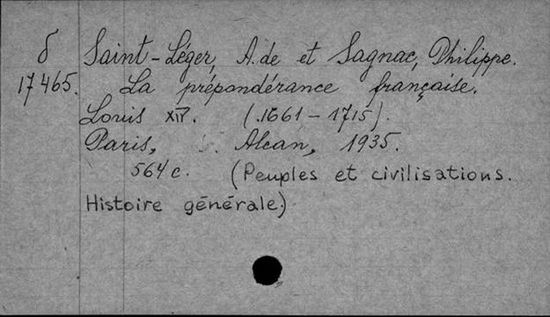 δ Saint-Léger, A. de et Sagnac, Philippe.
17465. La prépondérance française.
Louis XIV. (1661-1715).
Paris, Alcan, 1935.
564 c. (Peuples et civilisations.
Histoire générale.)